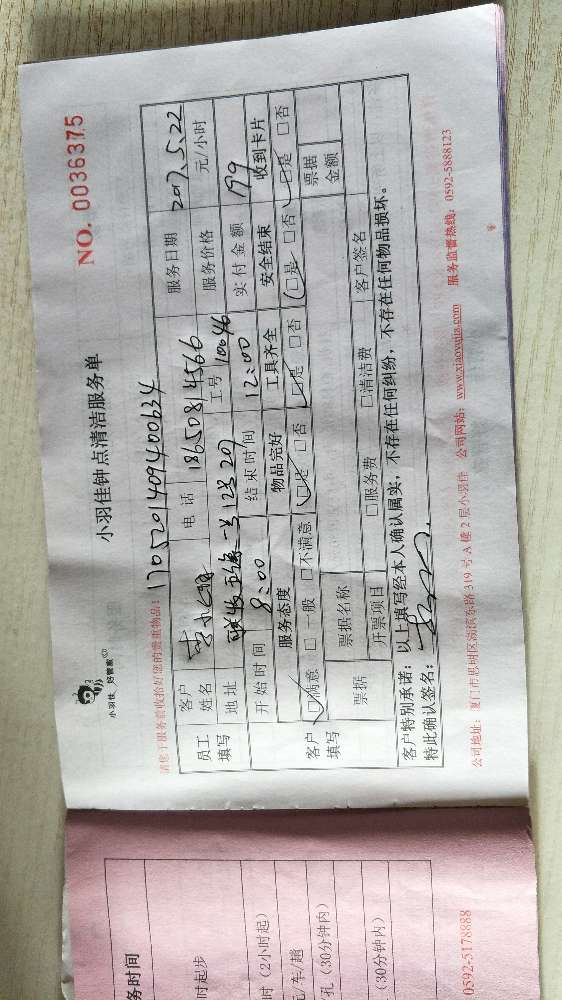 NO. 0036375
小羽佳 好管家
小羽佳钟点清洁服务单
请您于服务前收拾好您的贵重物品: 17052014094000634
员工填写
客户姓名
电话 18650814566
服务日期 2017.5.22
地址
工号 10046
服务价格 元/小时
开始时间 9:00
结束时间 12:00
实付金额 199
客户填写
服务态度
物品完好
工具齐全
安全结束
收到卡片
□满意 □一般 □不满意
□是 □否
□是 □否
□是 □否
□是 □否
票据
票据名称
票据金额
开票项目
□服务费 □清洁费
客户签名
客户特别承诺: 以上填写经本人确认属实,不存在任何纠纷,不存在任何物品损坏。
特此确认签名:
公司地址: 厦门市思明区湖滨东路319号A幢2层小羽佳 公司网站: www.xiaoyujia.com 服务监督热线: 0592-5888123
务时间
时起步
时(2小时起)
元/车/趟
孔(30分钟内)
(30分钟内)
0592-5178888